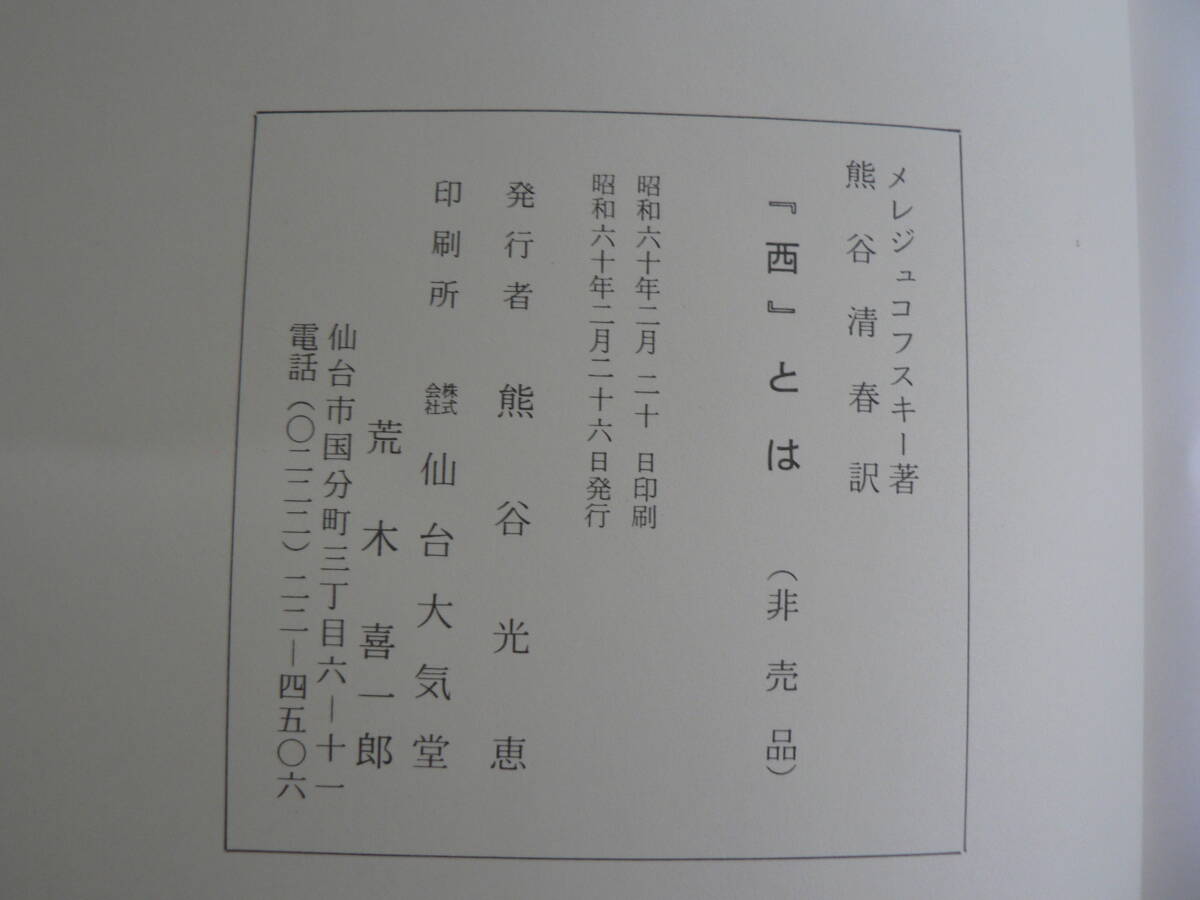 メレジュコフスキー著
熊谷清春訳
『西』とは（非売品）
昭和六十年二月二十日印刷
昭和六十年二月二十六日発行
発行者 熊谷光恵
印刷所 株式会社 仙台大気堂
荒木喜一郎
仙台市国分町三丁目六ー十一
電話（〇二二二）二二ー四五〇六